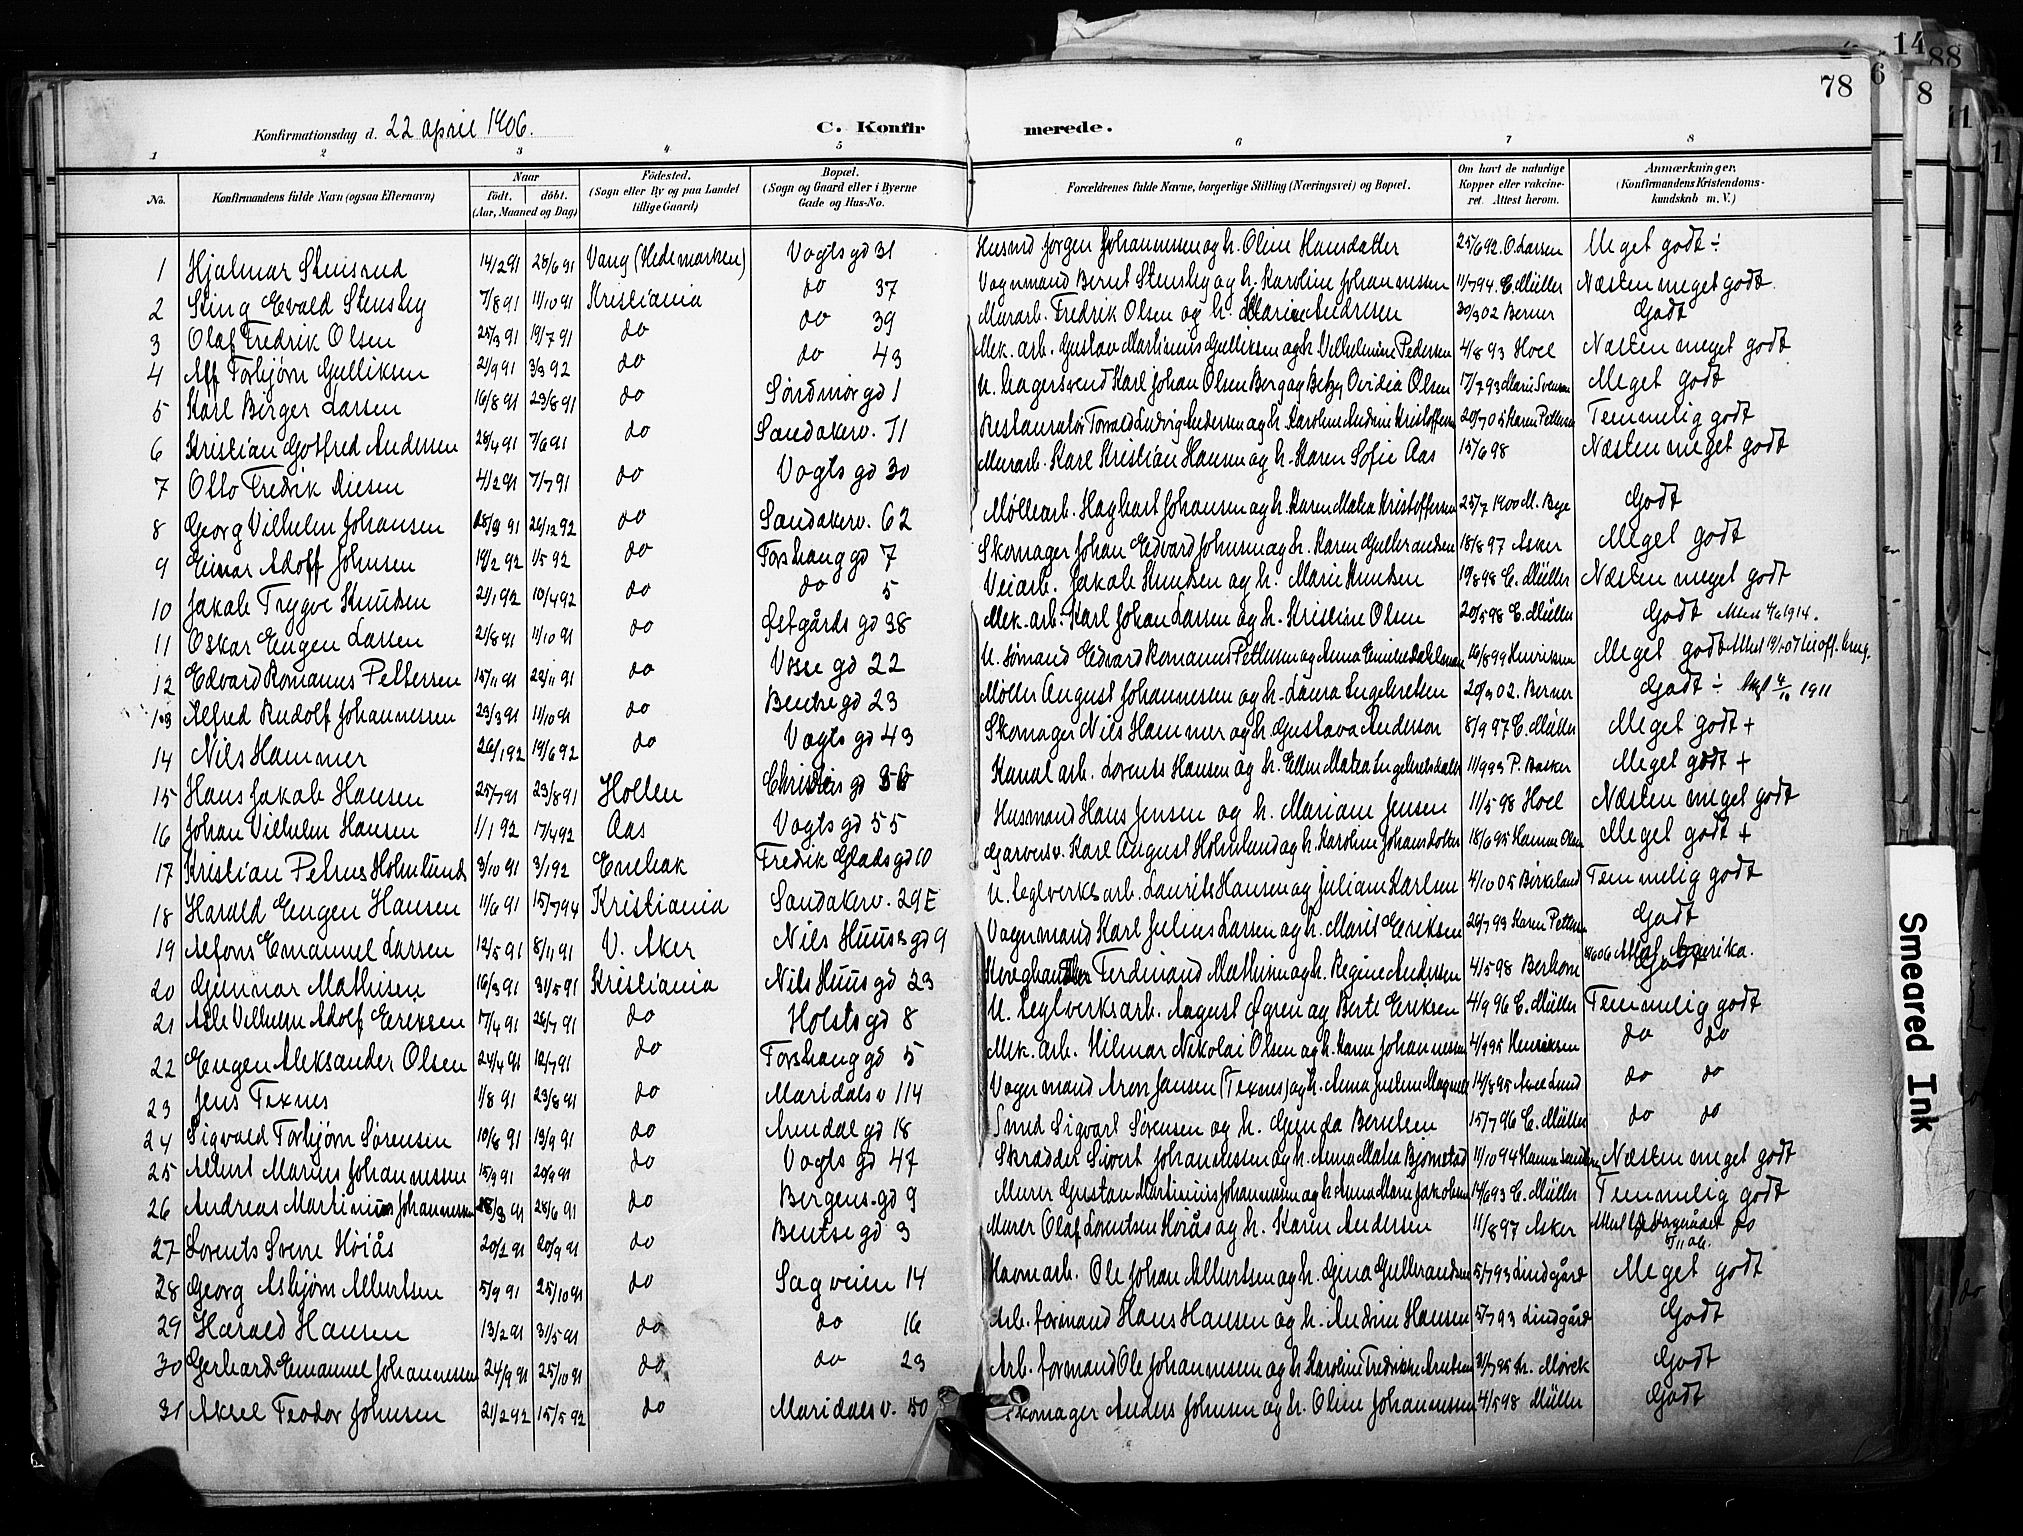 14
88
78
6
8
Konfirmationsdag d. 22 april 1906.
C. Konfirmerede.
1 2 3 4 5 6 7 8
No. Konfirmandens fulde Navn (ogsaa Efternavn) Naar födt. döbt. (Aar, Maaned og Dag) Födested. (Sogn eller By og paa Landet tillige Gaard) Bopæl. (Sogn og Gaard eller i Byerne Gade og Hus-No. Forældrenes fulde Navne, borgerlige Stilling (Næringsvei) og Bopæl. Om havt de naturlige Kopper eller vakcineret. Attest herom. Anmærkninger. (Konfirmandens Kristendomskundskab m. V.)
1 Hjalmar Stensrud 14/2 91 28/6 91 Vang (Hedemarken) Vogts gd 31 Husmd Jørgen Johannessen og h. Oline Hansdatter 25/6 92. O. Larsen Meget godt ÷
2 Evald Stensby 7/8 91 11/10 91 Kristiania do 37 Vognmand Bernt Stensby og h. Karoline Johannessen 11/7 94. C. Müller Næsten meget godt.
3 Olaf Fredrik Olsen 25/3 91 19/7 91 do do 39 Murarb. Fredrik Olsen og h. Marie Andresen 30/3 02 Berner Godt
4 Alf Torbjørn Gulliksen 21/9 91 3/3 92 do do 43 Mek. arb. Gustav Martinius Gulliksen og h. Vilhelmine Pedersen 4/8 93 Hoel Næsten meget godt
5 Karl Birger Larsen 16/8 91 23/8 91 do Søndmør gd 1 U. Karl Johan Olsen Berg og Betzy Ovidia Olsen 17/7 93 Marie Svensen Meget godt
6 Kristian Gotfred Andersen 28/4 91 7/6 91 do Sandakerv. 71 Restauratør Torvald Ludvig Andersen og h. Karoline Andrine Kristoffersen 20/7 05 Karen Pettersen Temmelig godt
7 Otto Fredrik 4/2 91 7/7 91 do Vogts gd 30 Murarb. Karl Kristian Hansen og h. Karen Sofie Aas 15/6 98 Næsten meget godt
8 Georg Vilhelm Johansen 18/9 91 26/12 92 do Sandakerv. 62 Møllearb. Hagbart Johansen og h. Karen Matea Kristoffersen 25/7 1900 M. Bye Godt
9 Einar Adolf Johnsen 19/2 92 1/5 92 do Forshaug gd 7 Skomager Johan Edvard Johnsen og h. Karen Gulbrandsen 18/8 97 Asker Meget godt
10 Jakob Trygve Knudsen 21/1 92 10/4 92 do do 5 Veiarb. Jakob Knudsen og h. Marie Knudsen 19/8 98 C. Müller Næsten meget godt
11 Oskar Eugen Larsen 21/8 91 11/10 91 do Østgårds gd 38 Mek. arb. Karl Johan Larsen og h. Kristine Olsen 20/5 98 C. Müller Godt 1914.
12 Edvard Romanus Pettersen 15/11 91 22/11 91 do Vosse gd 22 U. Sømand Edvard Romanus Pettersen og Anna Emilie Dahlman 16/8 99 Henriksen Meget godt
13 Alfred Rudolf Johannessen 23/3 91 11/10 91 do Bentse gd 23 Møller August Johannesen og h. Laura Ingebretsen 20/3 02. Berner Godt ÷ 1911
14 Nils Hammer 26/1 92 19/6 92 do Vogts gd 43 Skomager Nils Hammer og h. Gustava Anderson 8/9 97 C. Müller Meget godt +
15 Hans Jakob Hansen 25/7 91 23/8 91 Hollen Christies gd 36 Kanal arb. Lorents Hansen og h. Ellen Matea Ingebretsdatter 11/9 93 P. Basker Meget godt +
16 Johan Vilhelm Hansen 1/1 92 17/4 92 Aas Vogts gd 55 Husmand Hans Jensen og h. Mariane Jensen 11/5 98 Hoel Næsten meget godt
17 Kristian Petrus Holmlund 3/10 91 3/1 92 Enebak Fredrik Glads gd 10 Garversv. Karl August Holmlund og h. Karoline Johansdotter 18/6 95 Hanna Olsen Meget godt +
18 Harald Eugen Hansen 11/6 91 15/7 94 Kristiania Sandakerv. 29E U. teglverksarb. Laurits Hansen og Juliane Karlsen 4/10 05 Birkeland Temmelig godt
19 Alfons Emanuel Larsen 12/5 91 8/11 91 V. Aker Nils Huus gd 9 Vognmand Karl Julius Larsen og h. Marit Eriksen 29/7 93 Karen Pettersen Godt
20 Gunnar Mathisen 16/3 91 31/5 91 Kristiania Nils Huus gd 23 Ferdinand Mathisen og h. Regine Andersen 4/5 98 Berhom Amerika. Godt
21 Atle Vilhelm Adolf Eriksen 17/4 91 26/7 91 do Holsts gd 8 U. Teglverksarb. August Øgren og Berte Eriksen 4/9 96 C. Müller Temmelig godt
22 Eugen Aleksander Olsen 24/4 91 12/7 91 do Forshaug gd 5 Mek. arb. Hilmar Nikolai Olsen og h. Karen Johannessen 4/9 95 Henriksen do do
23 Jens Texnes 1/8 91 23/8 91 do Maridals v 114 Vognmand Aron Jansen (Texnes) og h. Anna Justine 14/8 95 Axel Lund do do
24 Sigvald Torbjørn Sørensen 10/8 91 13/9 91 do Arendal gd 18 Smed Sigvart Sørensen og h. Gunda Berntsen 15/7 96 C. Müller do do
25 Albert Marius Johannessen 15/3 91 20/9 91 do Vogts gd 47 Skrædder Sivert Johannessen og h. Anna Matea Bjørnstad 11/10 94 Hanna Næsten meget godt
26 Andreas Martinius Johannessen 28/3 91 28/6 91 do Bergens. gd 9 Murer Gustav Martinius Johannessen og h. Anna Marie Jakobsen 14/6 93 C. Müller Temmelig godt
27 Lorents Sverre Høiås 20/2 91 20/9 91 do Bentse gd 3 Murer Olaf Lorentsen Høiås og h. Karen Andersen 11/8 97 Asker do
28 Georg Asbjørn Albertsen 5/9 91 25/10 91 do Sagveien 14 Havnarb. Ole Johan Albertsen og h. Gina Gulbrandsen 5/7 93 Lindgård Meget godt
29 Harald Hansen 13/2 91 31/5 91 do do 16 Arb. formand Hans Hansen og h. Andrine Hansen 5/7 93 Lindgård Godt
30 Gerhard Emanuel Johannessen 24/9 91 25/10 91 do do 23 Arb. formand Ole Johannessen og h. Karoline Fredrikke Arntsen 31/7 95 Mørck Godt
31 Aksel Teodor Johnsen 21/2 92 15/5 92 do Maridals v. 150 Skomager Anders Johnsen og h. Oline Johannessen 4/5 98 Müller Godt
Smeared Ink